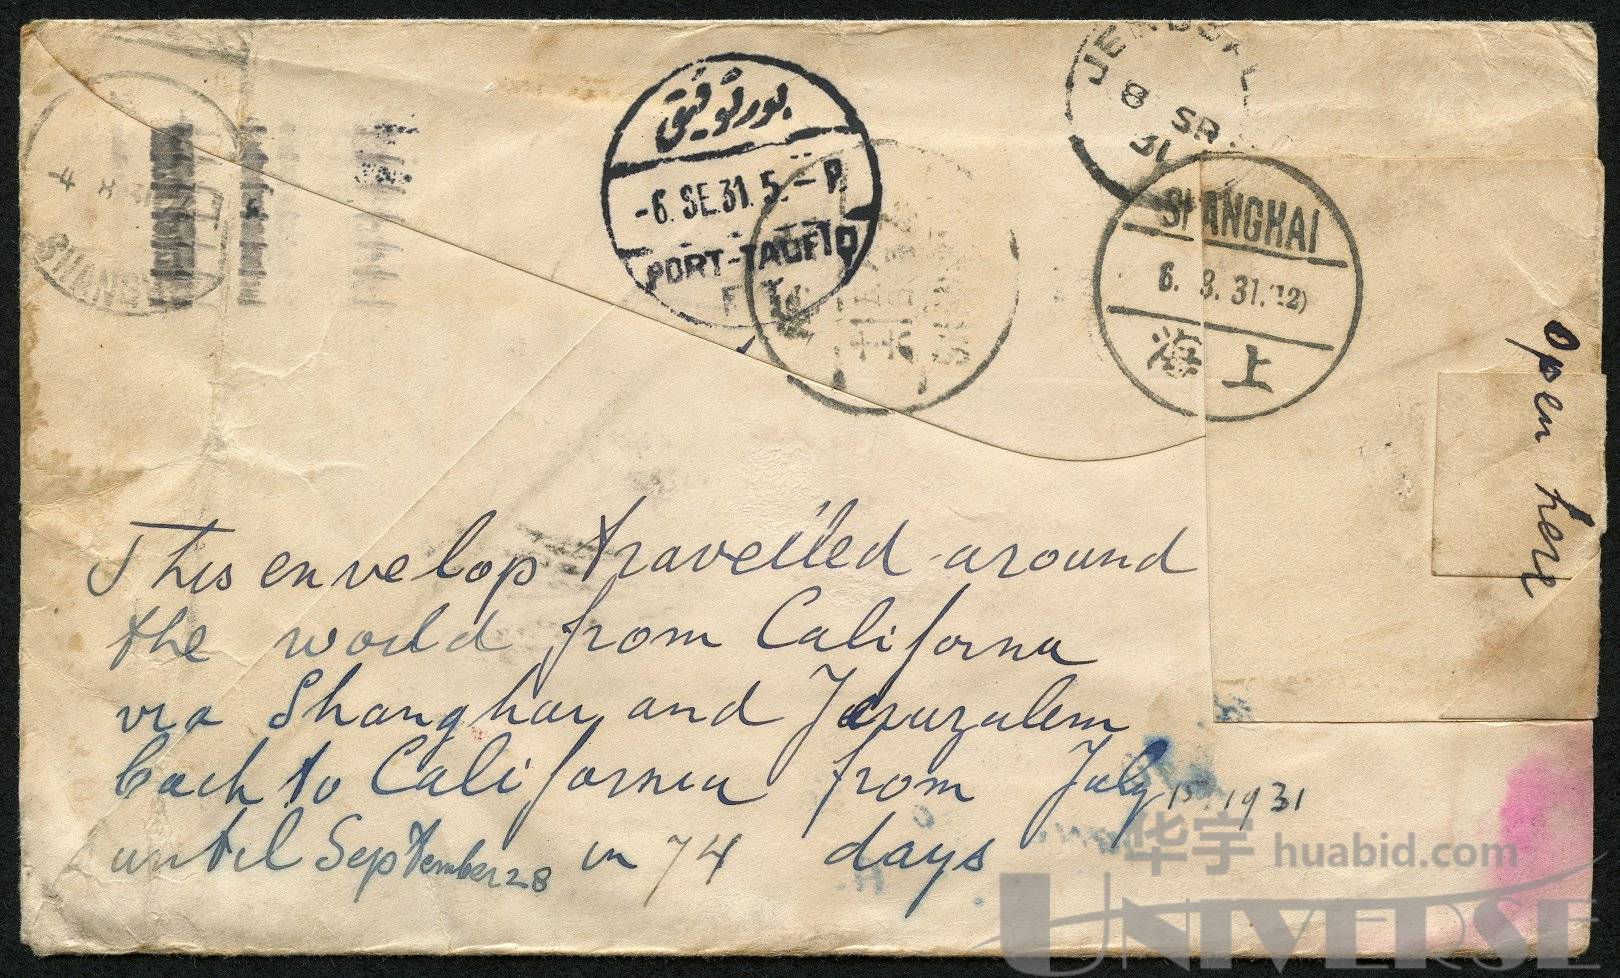 بورتوفيق
-6. SE.31. 5.- P.
PORT-TAUFIQ
8 SR
31
SHANGHAI
6. 8. 31.(12)
上海
-4
SHANG
Open here
This envelop travelled around
the world from Californa
via Shanghai, and Jeruzalem
back to California from July 15, 1931
until September 28 in 74 days
华宇 huabid.com
UNIVERSE